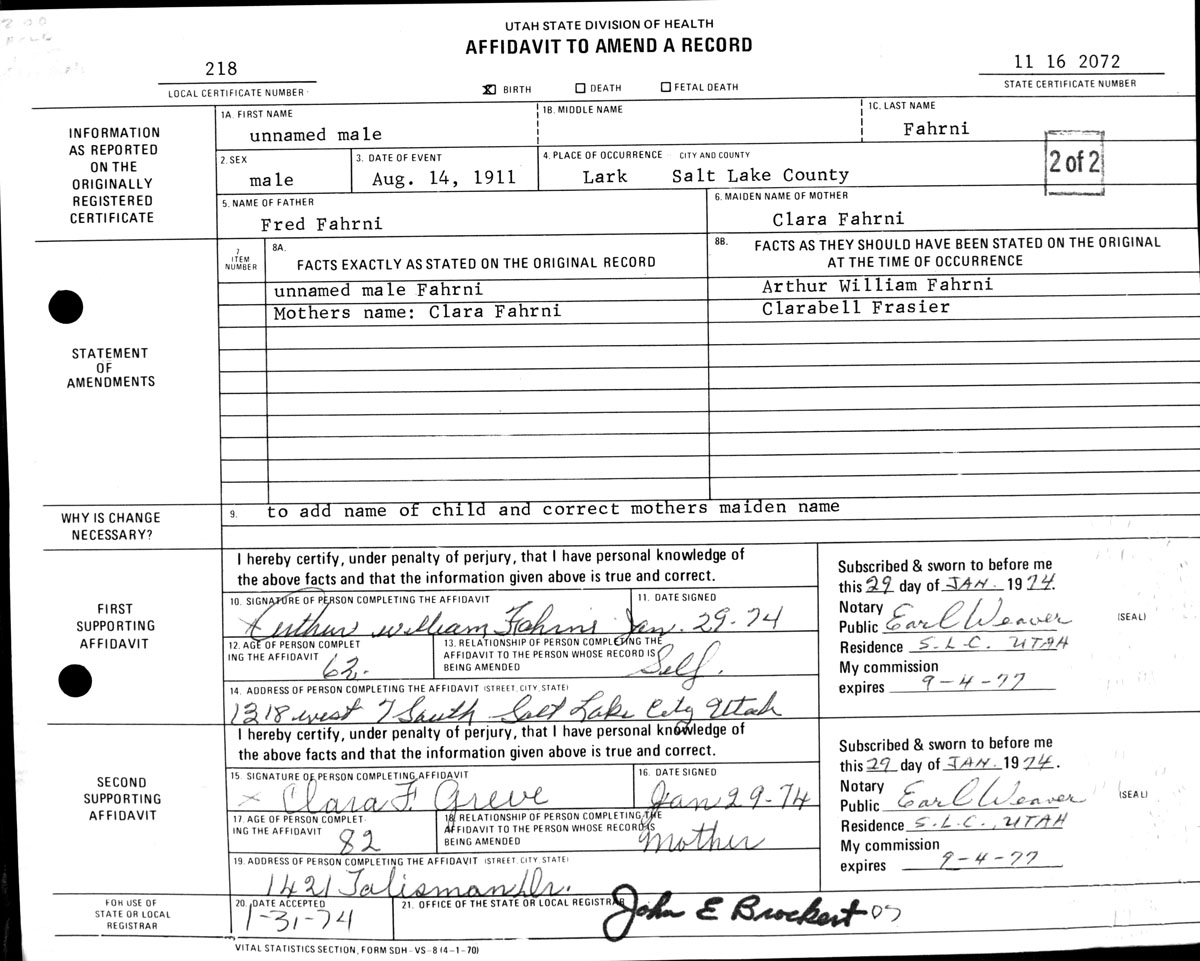 UTAH STATE DIVISION OF HEALTH
AFFIDAVIT TO AMEND A RECORD
218
LOCAL CERTIFICATE NUMBER
X BIRTH DEATH FETAL DEATH
11 16 2072
STATE CERTIFICATE NUMBER
INFORMATION
AS REPORTED
ON THE
ORIGINALLY
REGISTERED
CERTIFICATE
1A. FIRST NAME
unnamed male
1B. MIDDLE NAME
1C. LAST NAME
Fahrni
2. SEX
male
3. DATE OF EVENT
Aug. 14, 1911
4. PLACE OF OCCURRENCE CITY AND COUNTY
Lark Salt Lake County
2 of 2
5. NAME OF FATHER
Fred Fahrni
6. MAIDEN NAME OF MOTHER
Clara Fahrni
STATEMENT
OF
AMENDMENTS
7
ITEM
NUMBER
8A.
FACTS EXACTLY AS STATED ON THE ORIGINAL RECORD
8B. FACTS AS THEY SHOULD HAVE BEEN STATED ON THE ORIGINAL
AT THE TIME OF OCCURRENCE
unnamed male Fahrni
Arthur William Fahrni
Mothers name: Clara Fahrni
Clarabell Frasier
WHY IS CHANGE
NECESSARY?
9. to add name of child and correct mothers maiden name
FIRST
SUPPORTING
AFFIDAVIT
I hereby certify, under penalty of perjury, that I have personal knowledge of
the above facts and that the information given above is true and correct.
10. SIGNATURE OF PERSON COMPLETING THE AFFIDAVIT
x Arthur William Fahrni
11. DATE SIGNED
Jan. 29-74
12. AGE OF PERSON COMPLET
ING THE AFFIDAVIT
62.
13. RELATIONSHIP OF PERSON COMPLETING THE
AFFIDAVIT TO THE PERSON WHOSE RECORD IS
BEING AMENDED
Self.
14. ADDRESS OF PERSON COMPLETING THE AFFIDAVIT (STREET, CITY, STATE)
1318 west 7 South Salt Lake City Utah
Subscribed & sworn to before me
this 29 day of JAN. 1974.
Notary
Public Earl Weaver
(SEAL)
Residence S.L.C. UTAH
My commission
expires 9-4-77
SECOND
SUPPORTING
AFFIDAVIT
I hereby certify, under penalty of perjury, that I have personal knowledge of
the above facts and that the information given above is true and correct.
15. SIGNATURE OF PERSON COMPLETING AFFIDAVIT
x Clara F. Greve
16. DATE SIGNED
Jan 29-74
17. AGE OF PERSON COMPLET
ING THE AFFIDAVIT
82
18. RELATIONSHIP OF PERSON COMPLETING THE
AFFIDAVIT TO THE PERSON WHOSE RECORD IS
BEING AMENDED
Mother
19. ADDRESS OF PERSON COMPLETING THE AFFIDAVIT (STREET, CITY, STATE)
1421 Talisman Dr.
Subscribed & sworn to before me
this 29 day of JAN. 1974.
Notary
Public Earl Weaver
(SEAL)
Residence S.L.C., UTAH
My commission
expires 9-4-77
FOR USE OF
STATE OR LOCAL
REGISTRAR
20. DATE ACCEPTED
1-31-74
21. OFFICE OF THE STATE OR LOCAL REGISTRAR
John E Brockert
VITAL STATISTICS SECTION, FORM SDH-VS-8 (4-1-70)